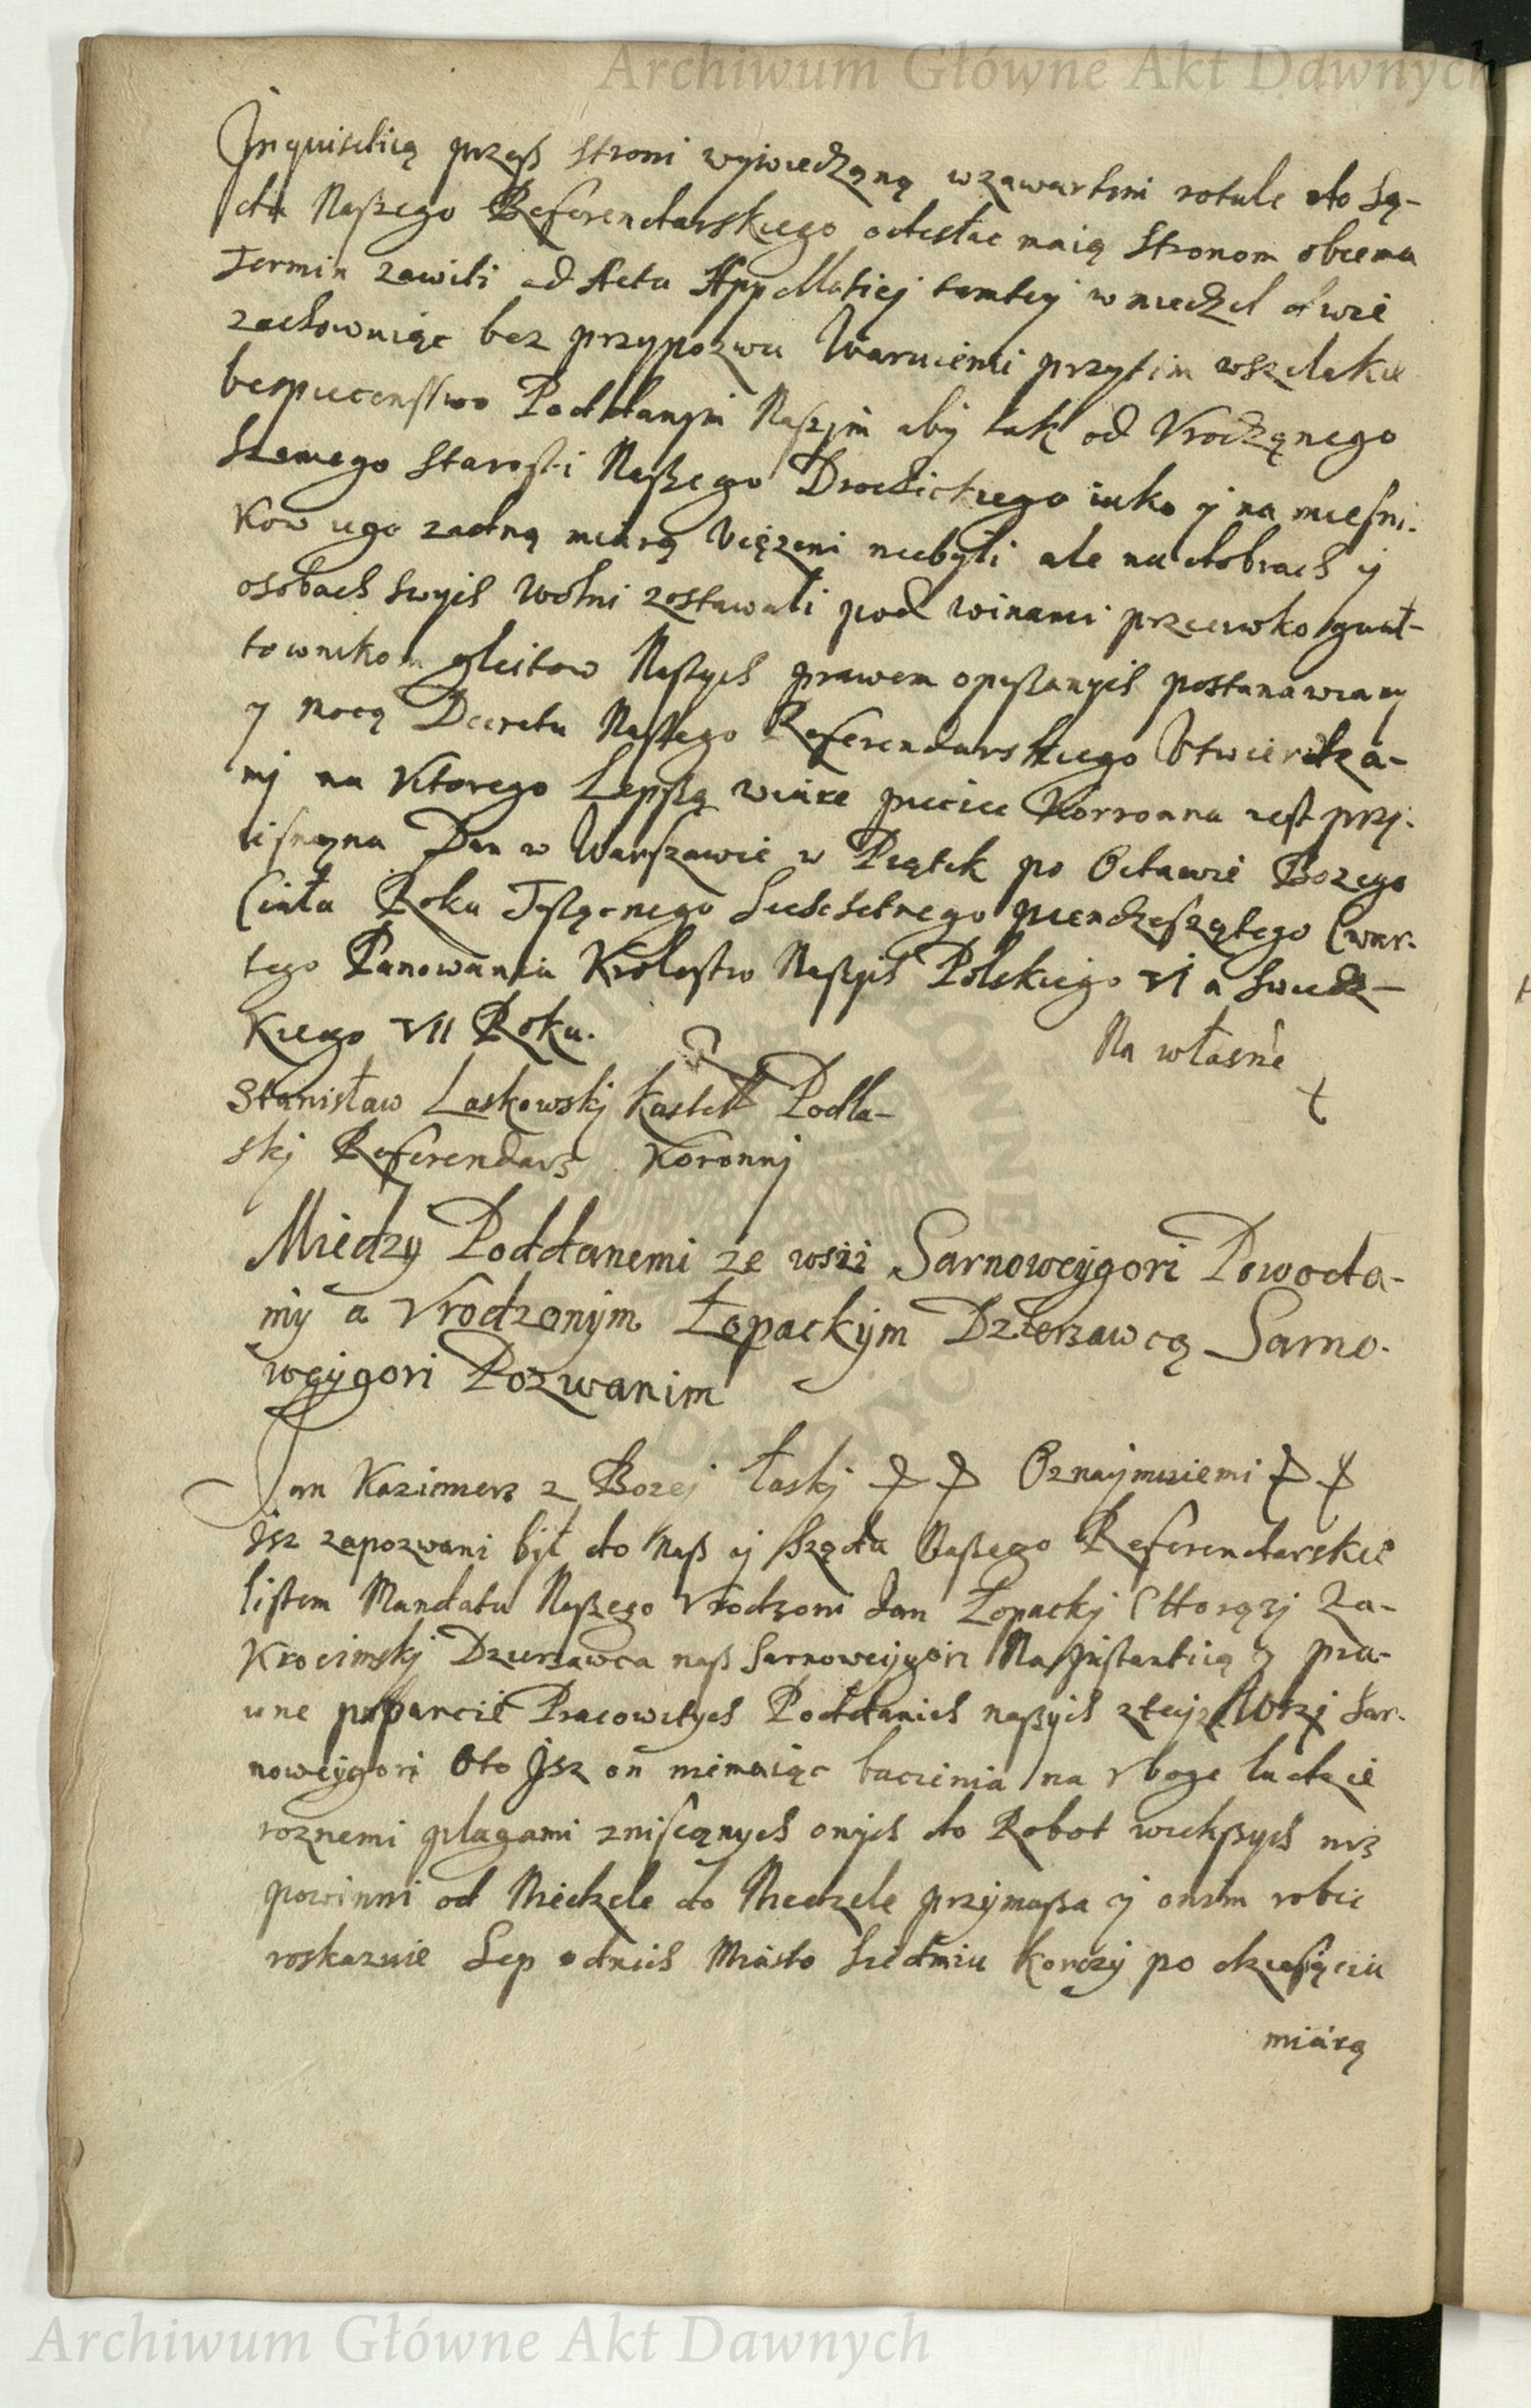 Archiwum Główne Akt Dawnych
Inquisitią przesz stroni wywiedzoną w zawartim rotule do Są-
du Naszego Referendarskiego odesłac maią Stronom obiema
Termin zawiti ad Acta Appellatiej tamtey w niedziel dwie
zachowuiąc bez przypozwu Waruiemi przytim wszelakie
bespieczenstwo Poddanym Naszym aby tak od Vrodzonego
Samego Starosti Naszego Drochickiego iako y namiesni-
kow iego zadną miarą Vciązeni niebyli ale na dobrach y
osobach swych wolni zostawali pod winami przeciwko gwał-
townikom gleitow Naszych prawem opisanych postanawiamy
y mocą Decretu Naszego Referendarskiego Vtwierdza-
mj na Ktorego Lepszą wiarę pieciec Koronna iest przy-
cisnęna Dan w Warszawie w Piątek po Octawie Bozego
Ciała Roku Tysiącnego Sescsetnego piendzesiątego Cwar-
tego Panowania Krolestw Naszych Polskiego VI a Swedz-
kiego VII Roku.
Na własne
Stanisław Laskowskj Kastell Podla-
skj Referendarz Koronnj
Miedzy Poddanemi ze wsii Sarnoweygori Powoda-
my a Vrodzonym Łopackym Dzierzawcą Sarno-
weygori Pozwanim
Jan Kazimierz z Bozej łaskj Oznaymuiemi
Jsz zapozwani był do Nasz y Sządu Naszego Referendarskie
listem Mandatu Naszego Vrodzoni Jan Łopackj Chorązj Za-
krocimskj Dzierzawca nasz Sarnoweygori Na Jnstantią y pra-
wne poparcie Pracowitych Poddanich naszych z teyze Wsi Sar-
noweygori Oto Jsz on niemaiąc baczenia na Vbogie ludzie
roznemi plagami zniscąnych onych do Robot wiekszych niz
powinni od Niedzele do Niedzele przymusza y onim robic
roskazuie Sep od nich Miasto Siedmiu Korczy po dziesięciu
miarą
Archiwum Główne Akt Dawnych